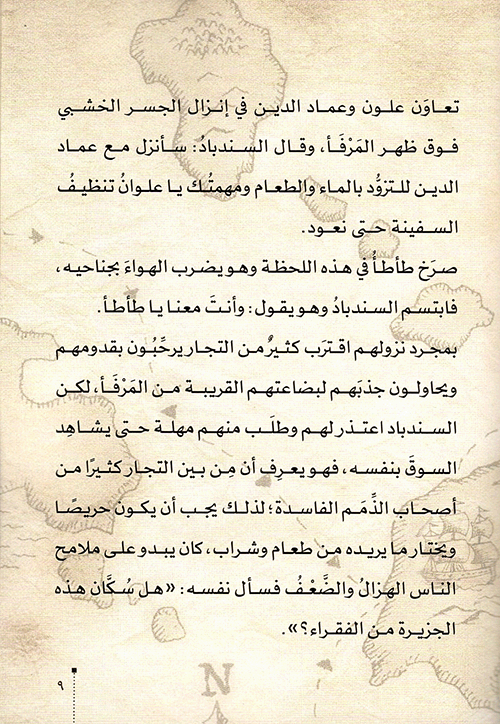 تعـاوَن علـون وعمـاد الديـن في إنـزال الجسـر الخشـبي
فـوق ظهـر المَرْفَـأ، وقـال السـندبادُ: سـأنزل مـع عمـاد
الديـن للـتزوُّد بالمـاء والطعـام ومهمتُـك يـا علـوانُ تنظيـفُ
السـفينة حـتى نعـود.
صـرَخ طأطـأُ في هـذه اللحظة وهـو يضـرب الهـواءَ بجناحيـه،
فابتسـم السـندبادُ وهـو يقـول: وأنتَ معنـا يـا طأطـأ.
بمجـرد نزولهـم اقـترَب كثـيرٌ مـن التجـار يرحِّبُـون بقدومهـم
ويحاولـون جذبَهـم لبضاعتهـم القريبـة مـن المَرْفَـأ، لكـن
السـندباد اعتـذر لهـم وطلَـب منهـم مهلـة حـتى يشـاهِد
السـوقَ بنفسـه، فهـو يعـرِف أن مِن بين التجار كثيرًا مـن
أصحـاب الذِّمَـم الفاسـدة؛ لذلـك يجـب أن يكـون حريصًـا
ويختـار مـا يريـده مـن طعـام وشـراب، كان يبـدو علـى ملامـح
النـاس الهـزالُ والضَّعْـفُ فسـأل نفسـه: «هـل سُـكَّان هـذه
الجزيـرة مـن الفقـراء؟».
٩
N